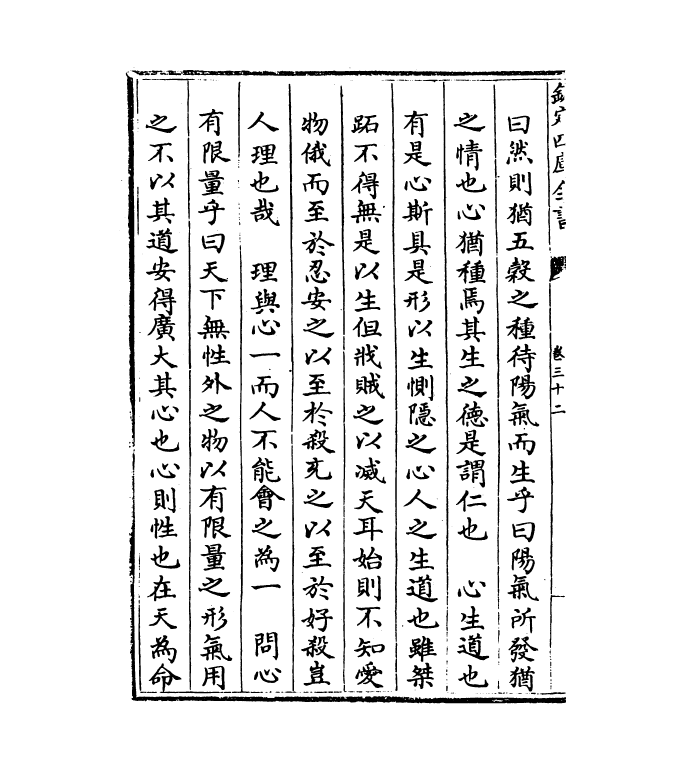 欽定四庫全書
卷三十二
曰然則猶五穀之種待陽氣而生乎曰陽氣所發猶
之情也心猶種焉其生之德是謂仁也　心生道也
有是心斯具是形以生惻隱之心人之生道也雖桀
跖不得無是以生但戕賊之以滅天耳始則不知愛
物俄而至於忍安之以至於殺充之以至於好殺豈
人理也哉　理與心一而人不能會之為一　問心
有限量乎曰天下無性外之物以有限量之形氣用
之不以其道安得廣大其心也心則性也在天為命